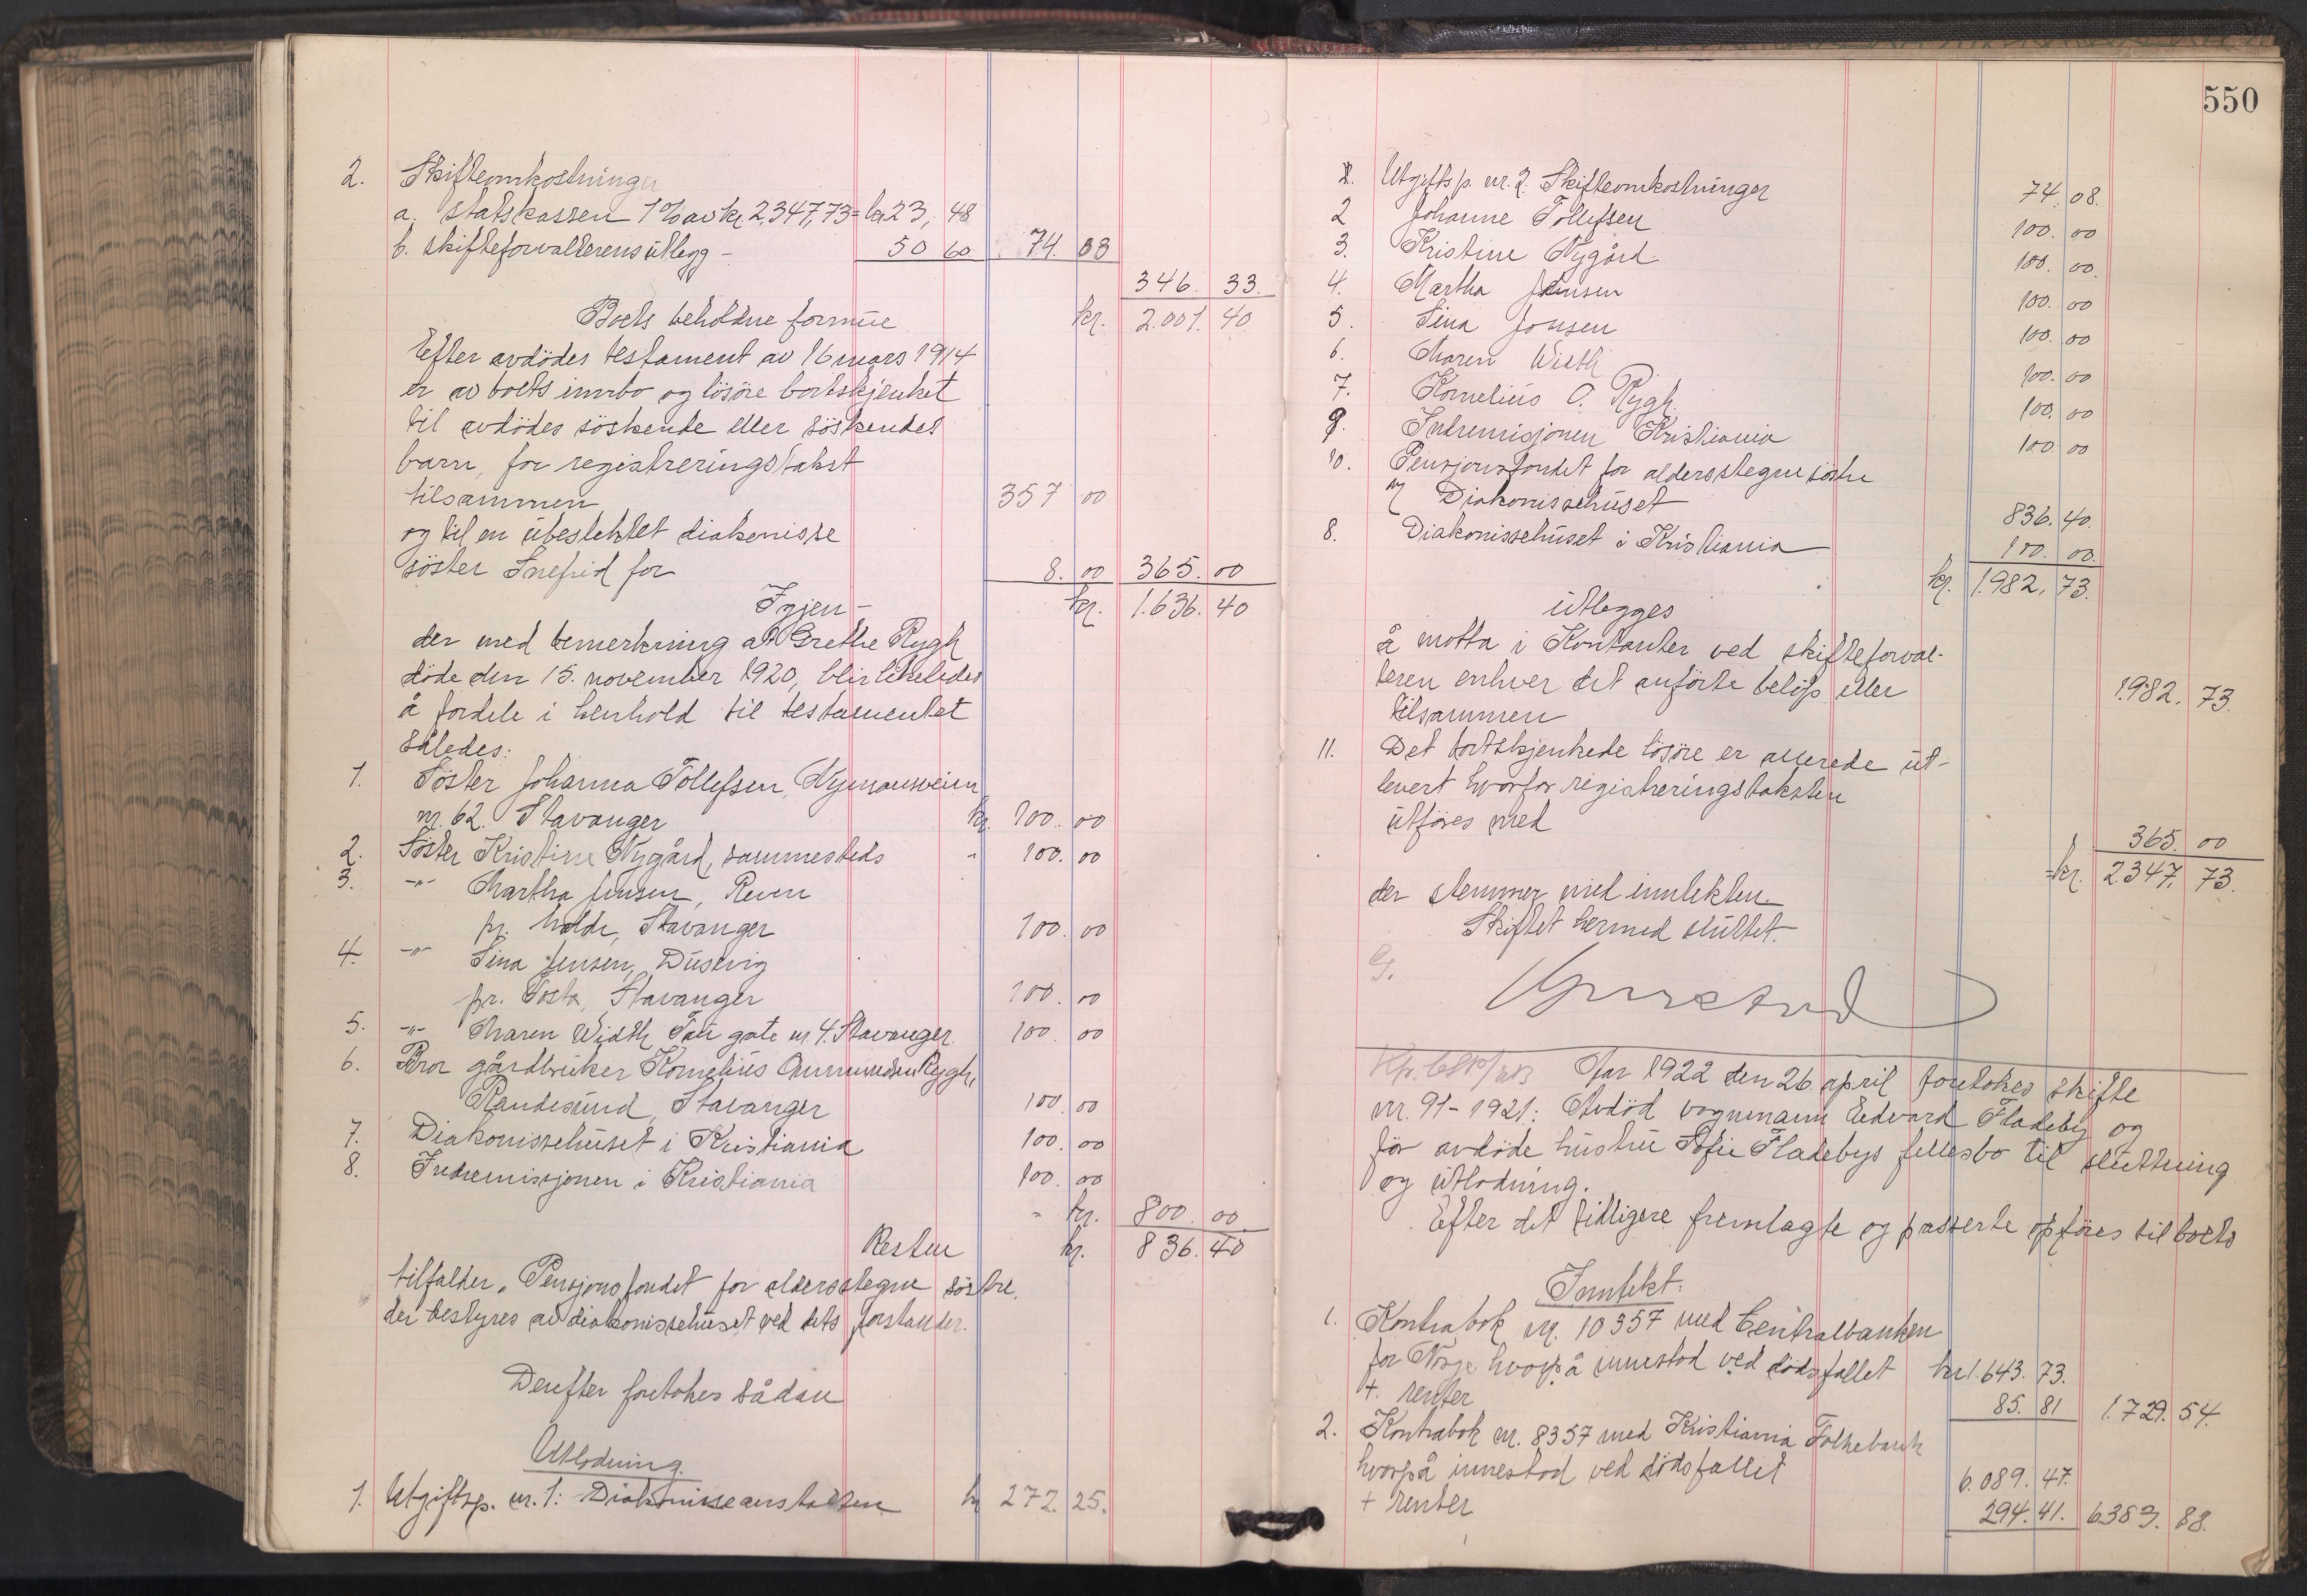 2. Skifteomkostninger
a. statskassen 1% av kr. 2347,73 = kr 23, 48
b. skifteforvalterens utlegg - 50 60 74. 08
346. 33.
Boets beholdne formue kr. 2.001. 40
Efter avdödes testament av 16 mars 1914
er av boets innbo og lösöre bortskjenket
til avdödes söskende eller söskendes
barn, for registreringstakst
tilsammen 357 00
og til en ubeslektet diakonisse
söster Snefrid for 8. 00 365. 00
Igjen - kr. 1.636. 40
der med bemerkning at Grethe Rygh
döde den 15. november 1920, blir likeledes
å fordele i henhold til testamentet
således:
1. Söster Johanna Tollefsen, Nymansveien
nr. 62. Stavanger kr. 100. 00
2. Söster Kristine Nygård, sammesteds - 100. 00
3. -"- Martha Jensen, Reven
pr. Malde, Stavanger 100. 00
4. -"- Sina Jensen, Dusevig
pr. Tasta, Stavanger 100. 00
5. -"- Maren Width, Tau gate nr. 4. Stavanger. 100. 00
6. Bror gårdbruker Kornelius Ommundsen Rygh,
Randesund, Stavanger 100. 00
7. Diakonissehuset i Kristiania 100. 00
8. Indremisjonen i Kristiania 100. 00
- kr. 800. 00
Resten kr. 836. 40
tilfalder "Pensjonsfondet for alderstegne söstre,
der bestyres av diakonissehuset ved dets forstander.
Derefter foretokes sådan
Utlodning.
1. Utgiftsp. nr. 1: Diakonisseanstalten kr 272. 25.
550
2. Utgiftsp. nr. 2. Skifteomkostninger 74. 08.
2 Johanne Tollefsen 100. 00
3. Kristine Nygård 100. 00.
4. Martha Jensen 100. 00
5. Sina Jonsen 100. 00
6. Maren Width 100. 00
7. Kornelius O. Rygh. 100. 00
9. Indremisjonen Kristiania 100 00
10. Pensjonsfondet for alderstegne söstre
av Diakonissehuset 836. 40.
8. Diakonissehuset i Kristiania 100. 00.
kr. 1.982. 73.
utlegges
å motta i Kontanter ved skifteforval-
teren enhver det anförte belöp eller
tilsammen 1982. 73.
11. Det bortskjenkede lösöre er allerede ut-
levert hvorfor registreringstaksten
utföres med 365. 00
=kr. 2.347. 73.
der stemmer med inntekten.
Skiftet hermed sluttet.
År 1922 den 26. april foretokes skifte
nr. 91-1921: Avdöd vognmann Edvard Fladeby og
för avdöde hustru Sofie Fladebys fellesbo til sluttning
og utlodning.
Efter det tidligere fremlagte og passerte opföres til boets
Inntekt.
1. Kontrabok nr. 10357 med Centralbanken
for Norge hvorpå innestod ved dödsfallet kr 1.643. 73.
+ renter 85. 81 1.729. 54.
2. Kontrabok nr. 8357 med Kristiania Folkebank
hvorpå innestod ved dödsfallet 6.089. 47.
+ renter 294. 41. 6383. 88.